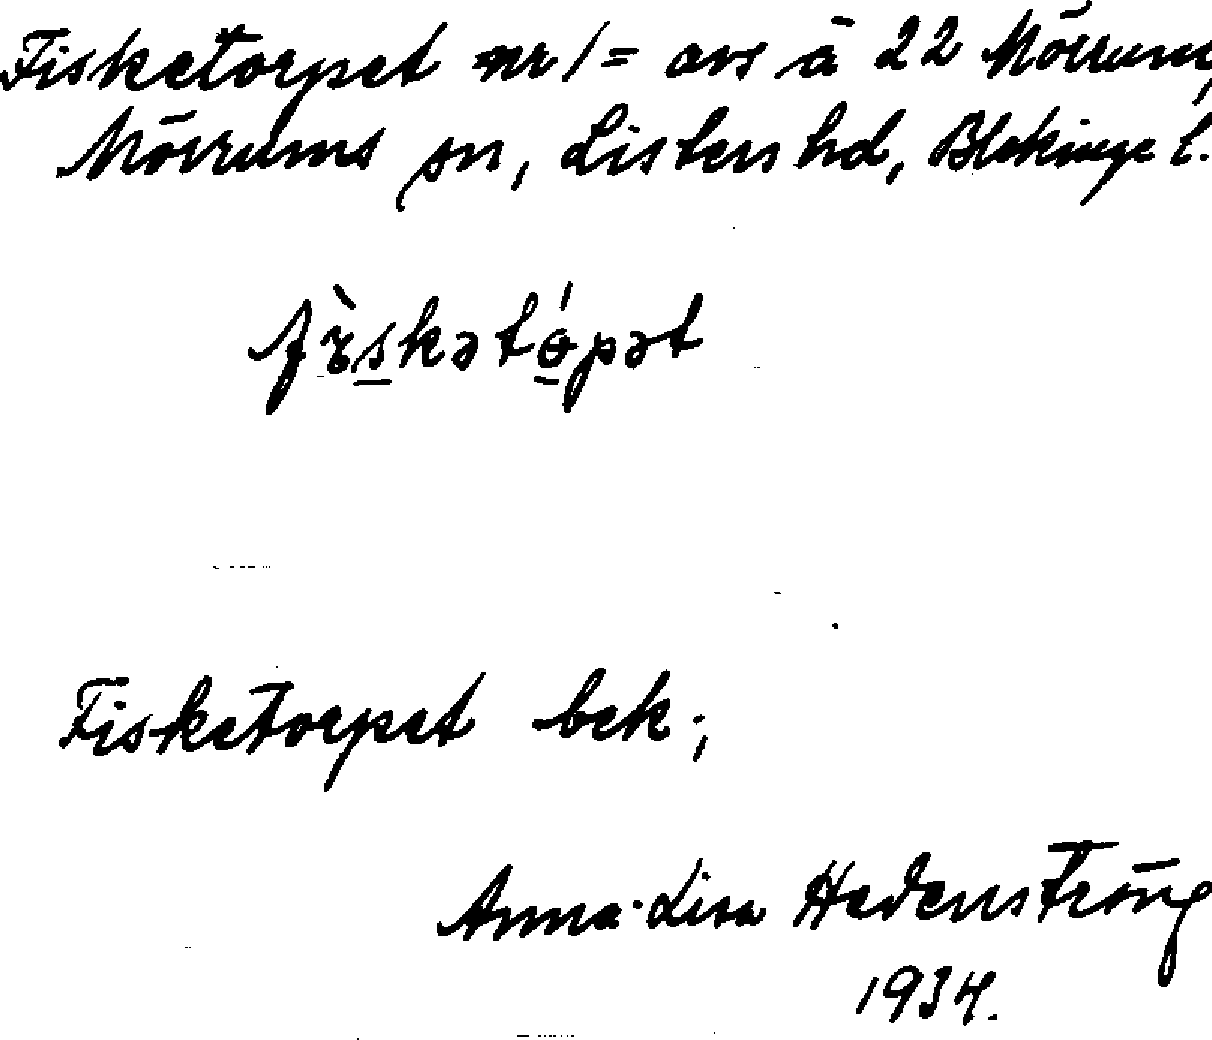 Fisketorpet nr 1 = avs å 22 Mörrum,
Mörrums sn, Listers hd, Blekinge l.
fìskətópət
Fisketorpet bek.,
Anna-Lisa Hedenström
1934.